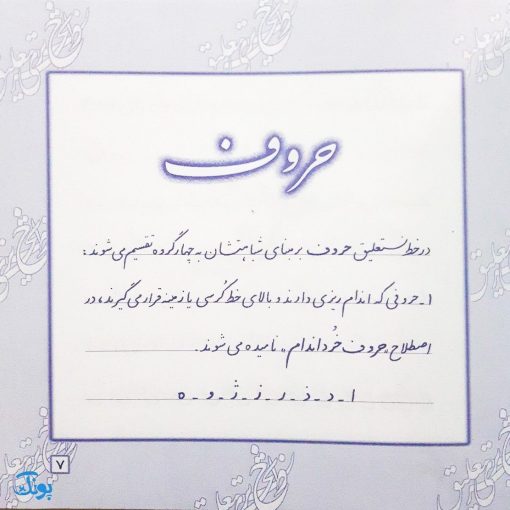 حروف
در خط نستعلیق حروف بر مبنای شباهتشان به چهار گروه تقسیم می شوند :
۱ـ حروفی که اندام ریزی دارند و بالای خط کرسی یا زمینه قرار می گیرند، در
اصطلاح «حروف خُرد اندام» نامیده می شوند.
ا ـ د ـ ذ ـ ر ـ ز ـ ژ ـ و ـ ه
۷
پونک